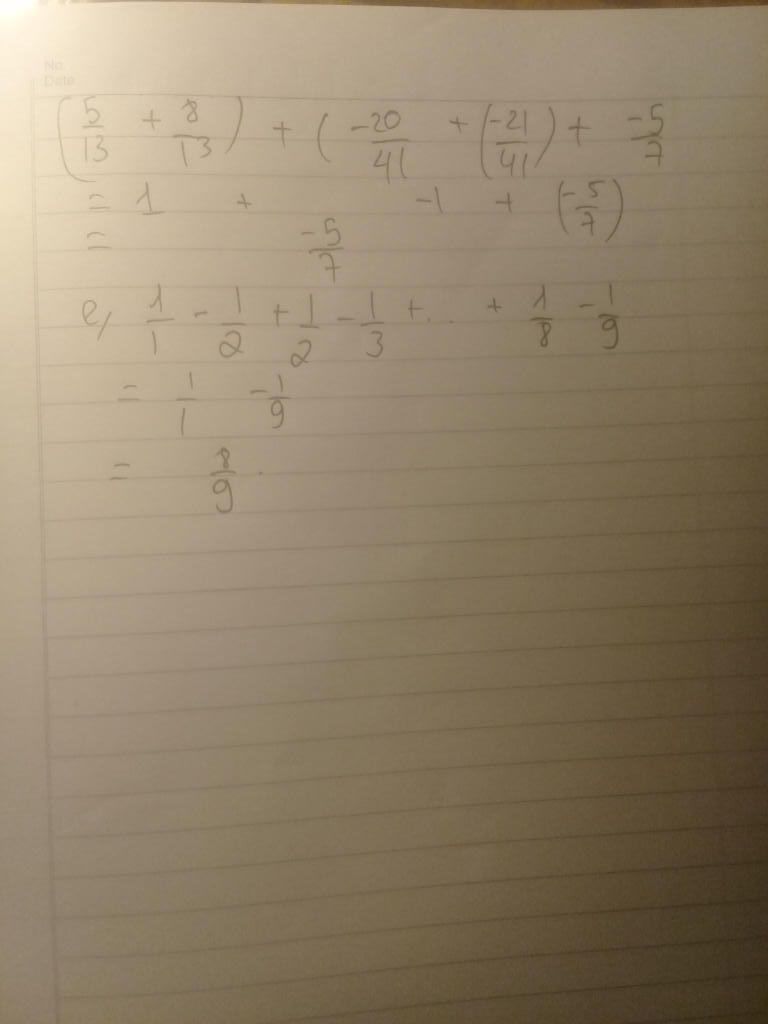 No.
Date
(5/13 + 8/13) + (-20/41 + (-21/41) + -5/7
= 1 + -1 + (-5/7)
= -5/7
e, 1/1 - 1/2 + 1/2 - 1/3 + ... + 1/8 - 1/9
= 1/1 - 1/9
= 8/9.